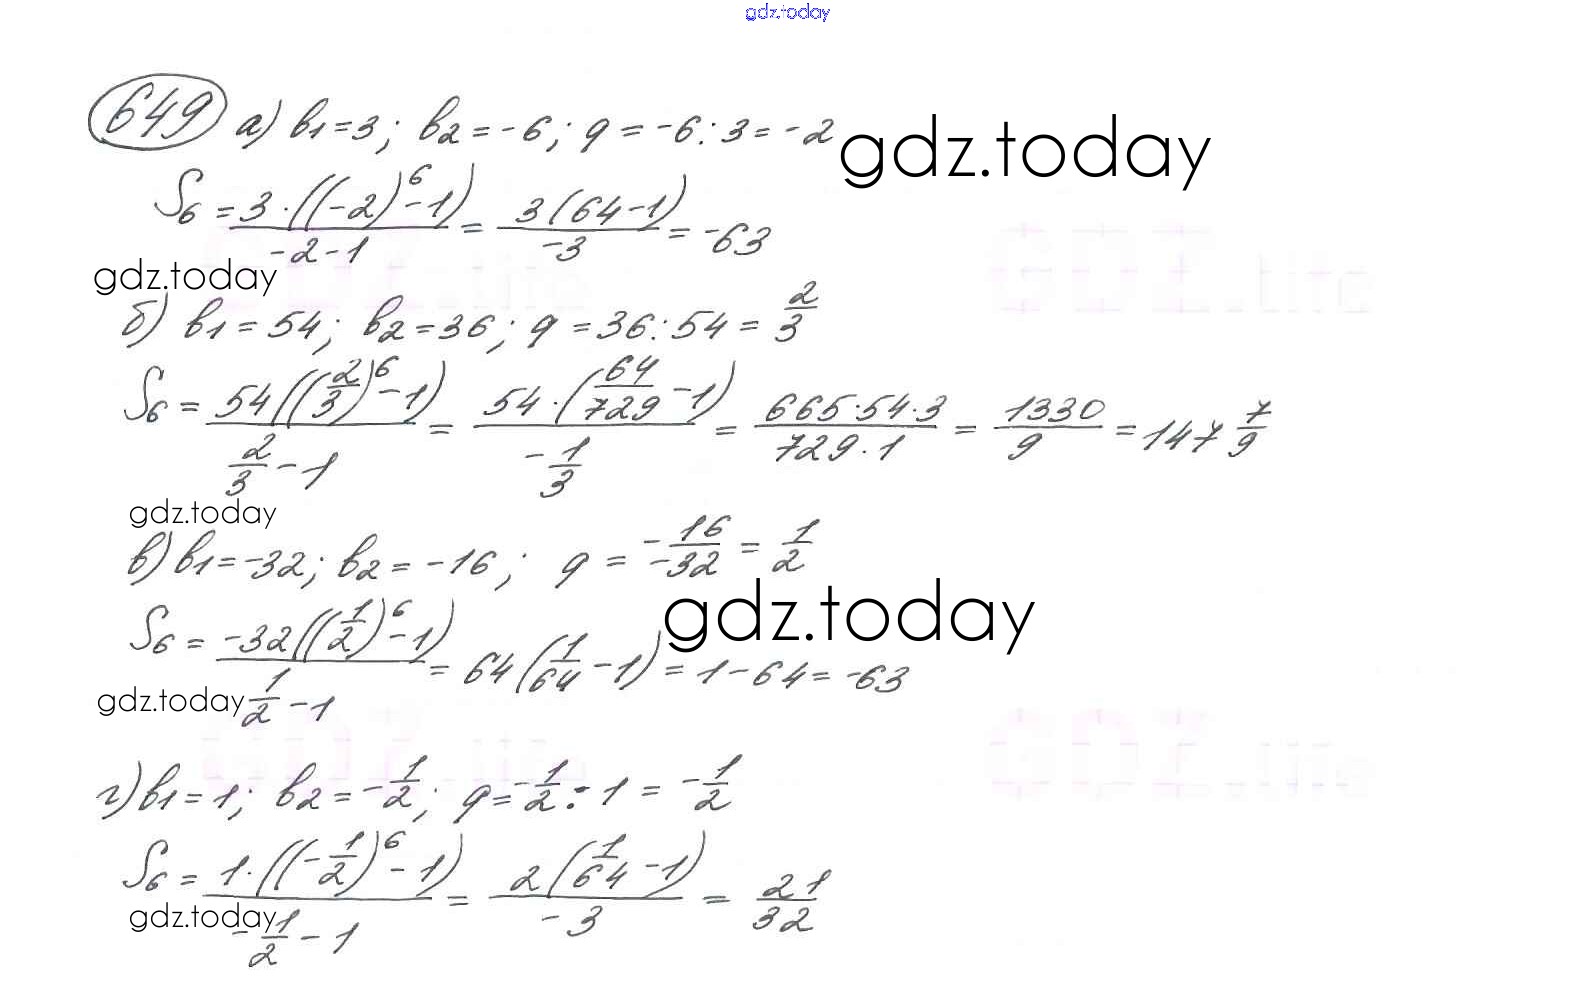 gdz.today
649 а) b₁=3; b₂=-6; q=-6:3=-2
gdz.today
S₆ = 3·((-2)⁶-1)/(-2-1) = 3(64-1)/(-3) = -63
gdz.today
б) b₁=54; b₂=36; q=36:54=2/3
S₆ = 54((2/3)⁶-1)/(2/3-1) = 54·(64/729-1)/(-1/3) = 665·54·3/(729·1) = 1330/9 = 147 7/9
gdz.today
в) b₁=-32; b₂=-16; q = -16/-32 = 1/2
gdz.today
S₆ = -32((1/2)⁶-1)/(1/2-1) = 64(1/64-1) = 1-64 = -63
gdz.today
г) b₁=1; b₂=-1/2; q=-1/2:1=-1/2
S₆ = 1·((-1/2)⁶-1)/(-1/2-1) = 2(1/64-1)/(-3) = 21/32
gdz.today
GDZ.life
GDZ.life
GDZ.life
GDZ.life